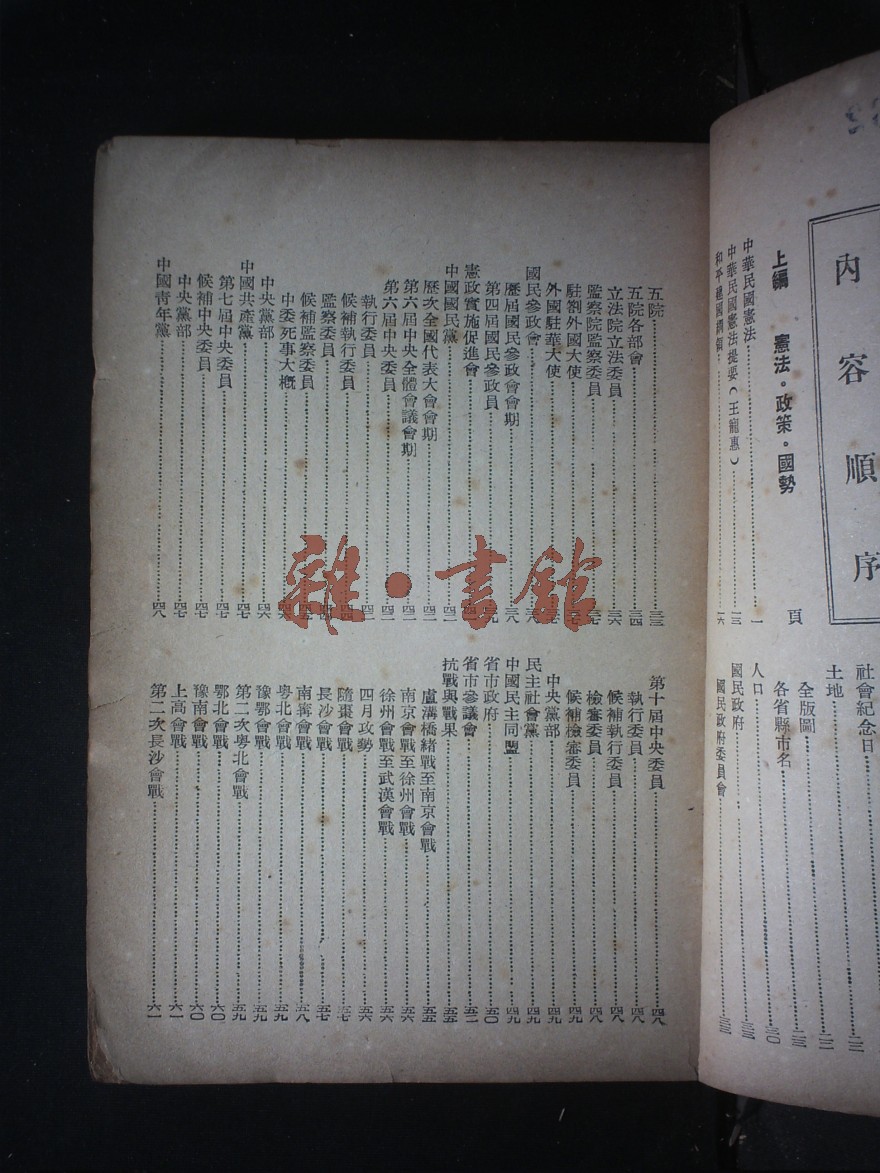 內容順序
上編 憲法・政策・國勢
頁
中華民國憲法……一
中華民國憲法提要(王寵惠)……一三
和平建國綱領……一六
社會紀念日
土地
全版圖
各省縣市名
人口
國民政府
國民政府委員會
五院……三三
五院各部會……三四
立法院立法委員……三六
監察院監察委員……三七
駐劄外國大使……三七
外國駐華大使
國民參政會
歷屆國民參政會會期……三八
第四屆國民參政員……三九
憲政實施促進會
中國國民黨……四二
歷次全國代表大會會期……四二
第六屆中央全體會議會期……四二
第六屆中央委員
執行委員
候補執行委員
監察委員
候補監察委員
中委死事大概
中央黨部……四六
中國共產黨……四七
第七屆中央委員……四七
候補中央委員……四七
中央黨部……四七
中國青年黨……四八
第十屆中央委員……四八
執行委員……四八
候補執行委員……四八
檢審委員……四八
候補檢審委員……四九
中央黨部……四九
民主社會黨……四九
中國民主同盟……四九
省市政府……五〇
省市參議會……五二
抗戰與戰果……五五
盧溝橋緒戰至南京會戰……五五
南京會戰至徐州會戰……五六
徐州會戰至武漢會戰……五六
四月攻勢……五六
隨棗會戰……五七
長沙會戰……五七
南寗會戰……五八
粵北會戰……五九
豫鄂會戰……五九
第二次粵北會戰……五九
鄂北會戰……六〇
豫南會戰……六〇
上高會戰……六一
第二次長沙會戰……六一
雜・書館